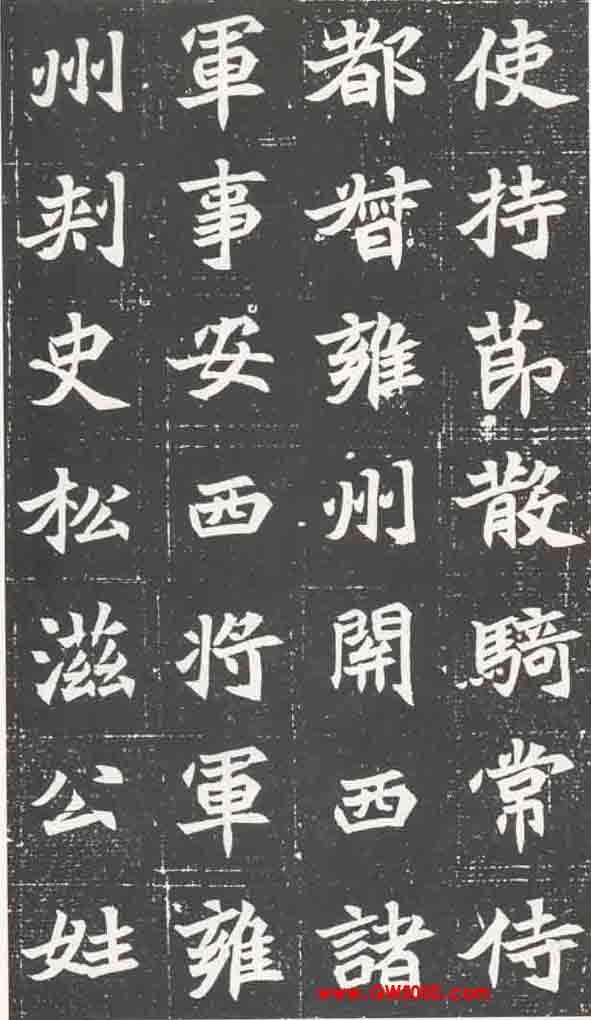 使持莭散騎常侍
都督雍州関西諸
軍事安西将軍雍
州刾史松滋公姓
www.GW5000.com